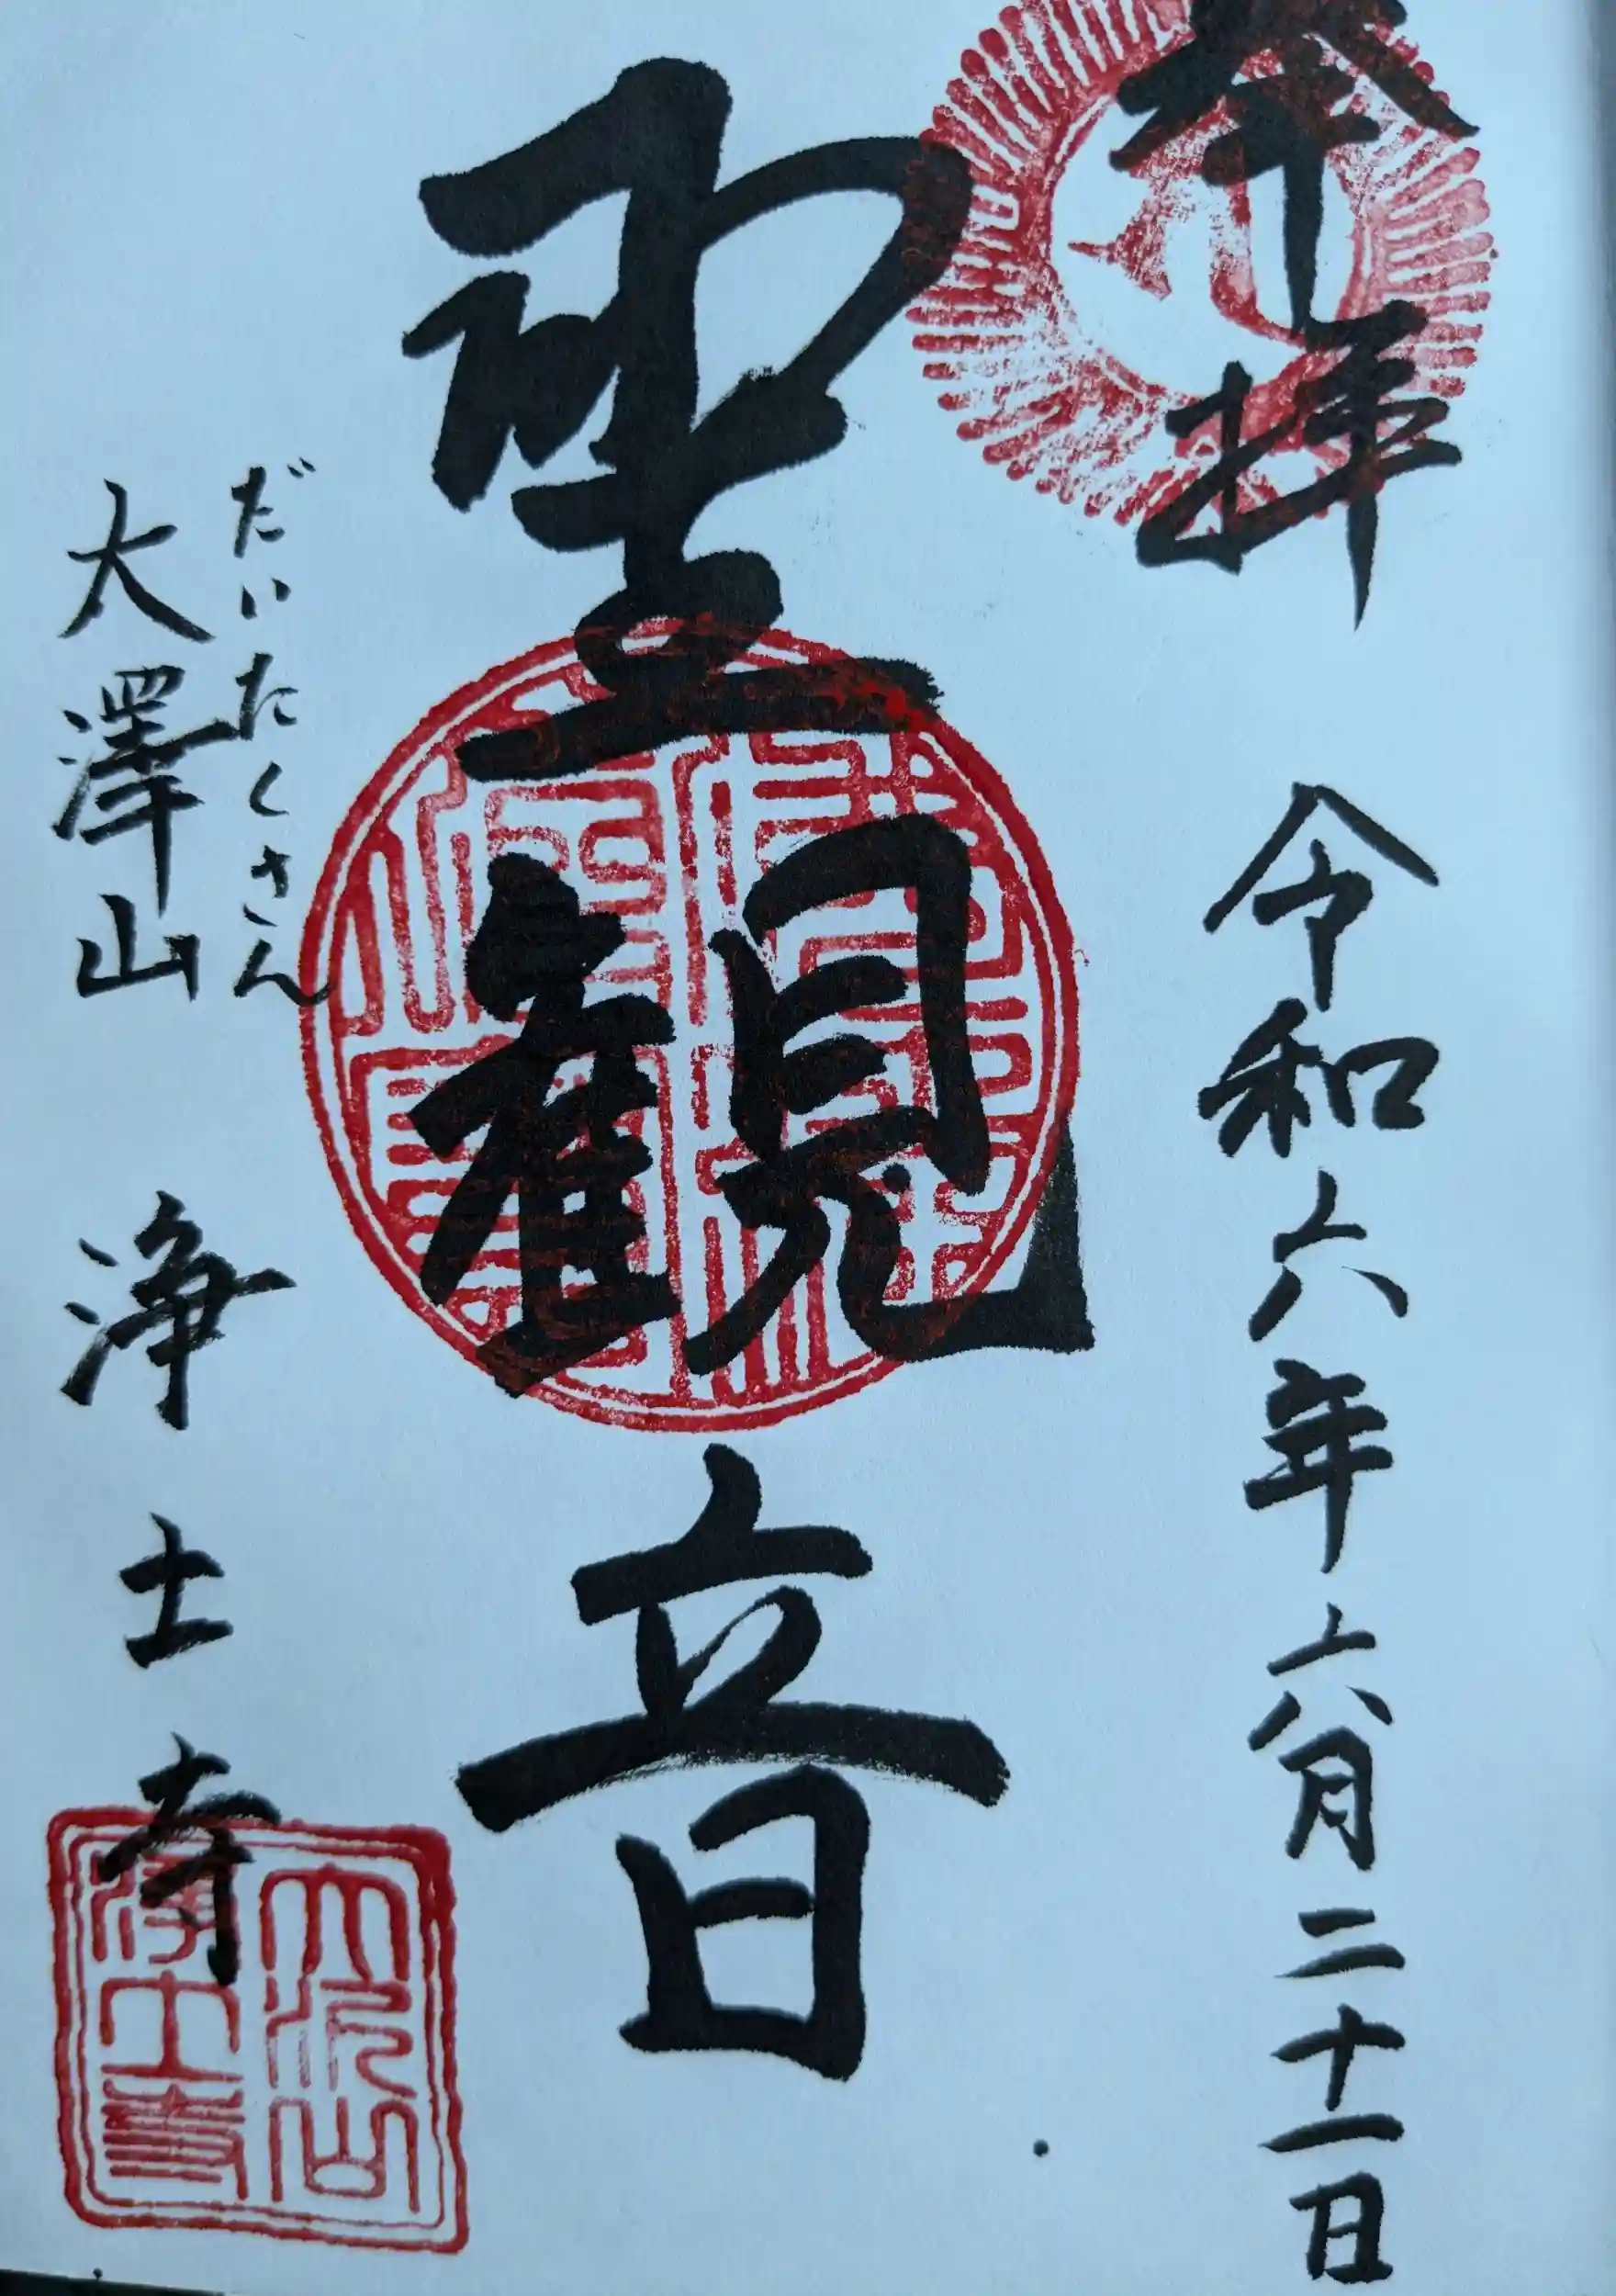 奉拝　令和六年六月二十一日
聖観音
だいたくさん
大澤山　浄土寺